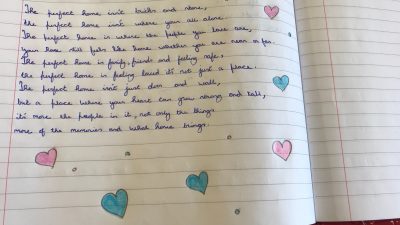 The perfect home isn't bricks and stone,
the perfect home isn't where your all alone.
The perfect home is where the people you love are,
your home still feels like home weather you are near or far.
The perfect home is family, friends and feeling safe,
the perfect home is feeling loved it's not just a place.
The perfect home isn't just door and wall,
but a place where your heart can grow strong and tall,
it's more the people in it, not only the things
more of the memories and what home brings.